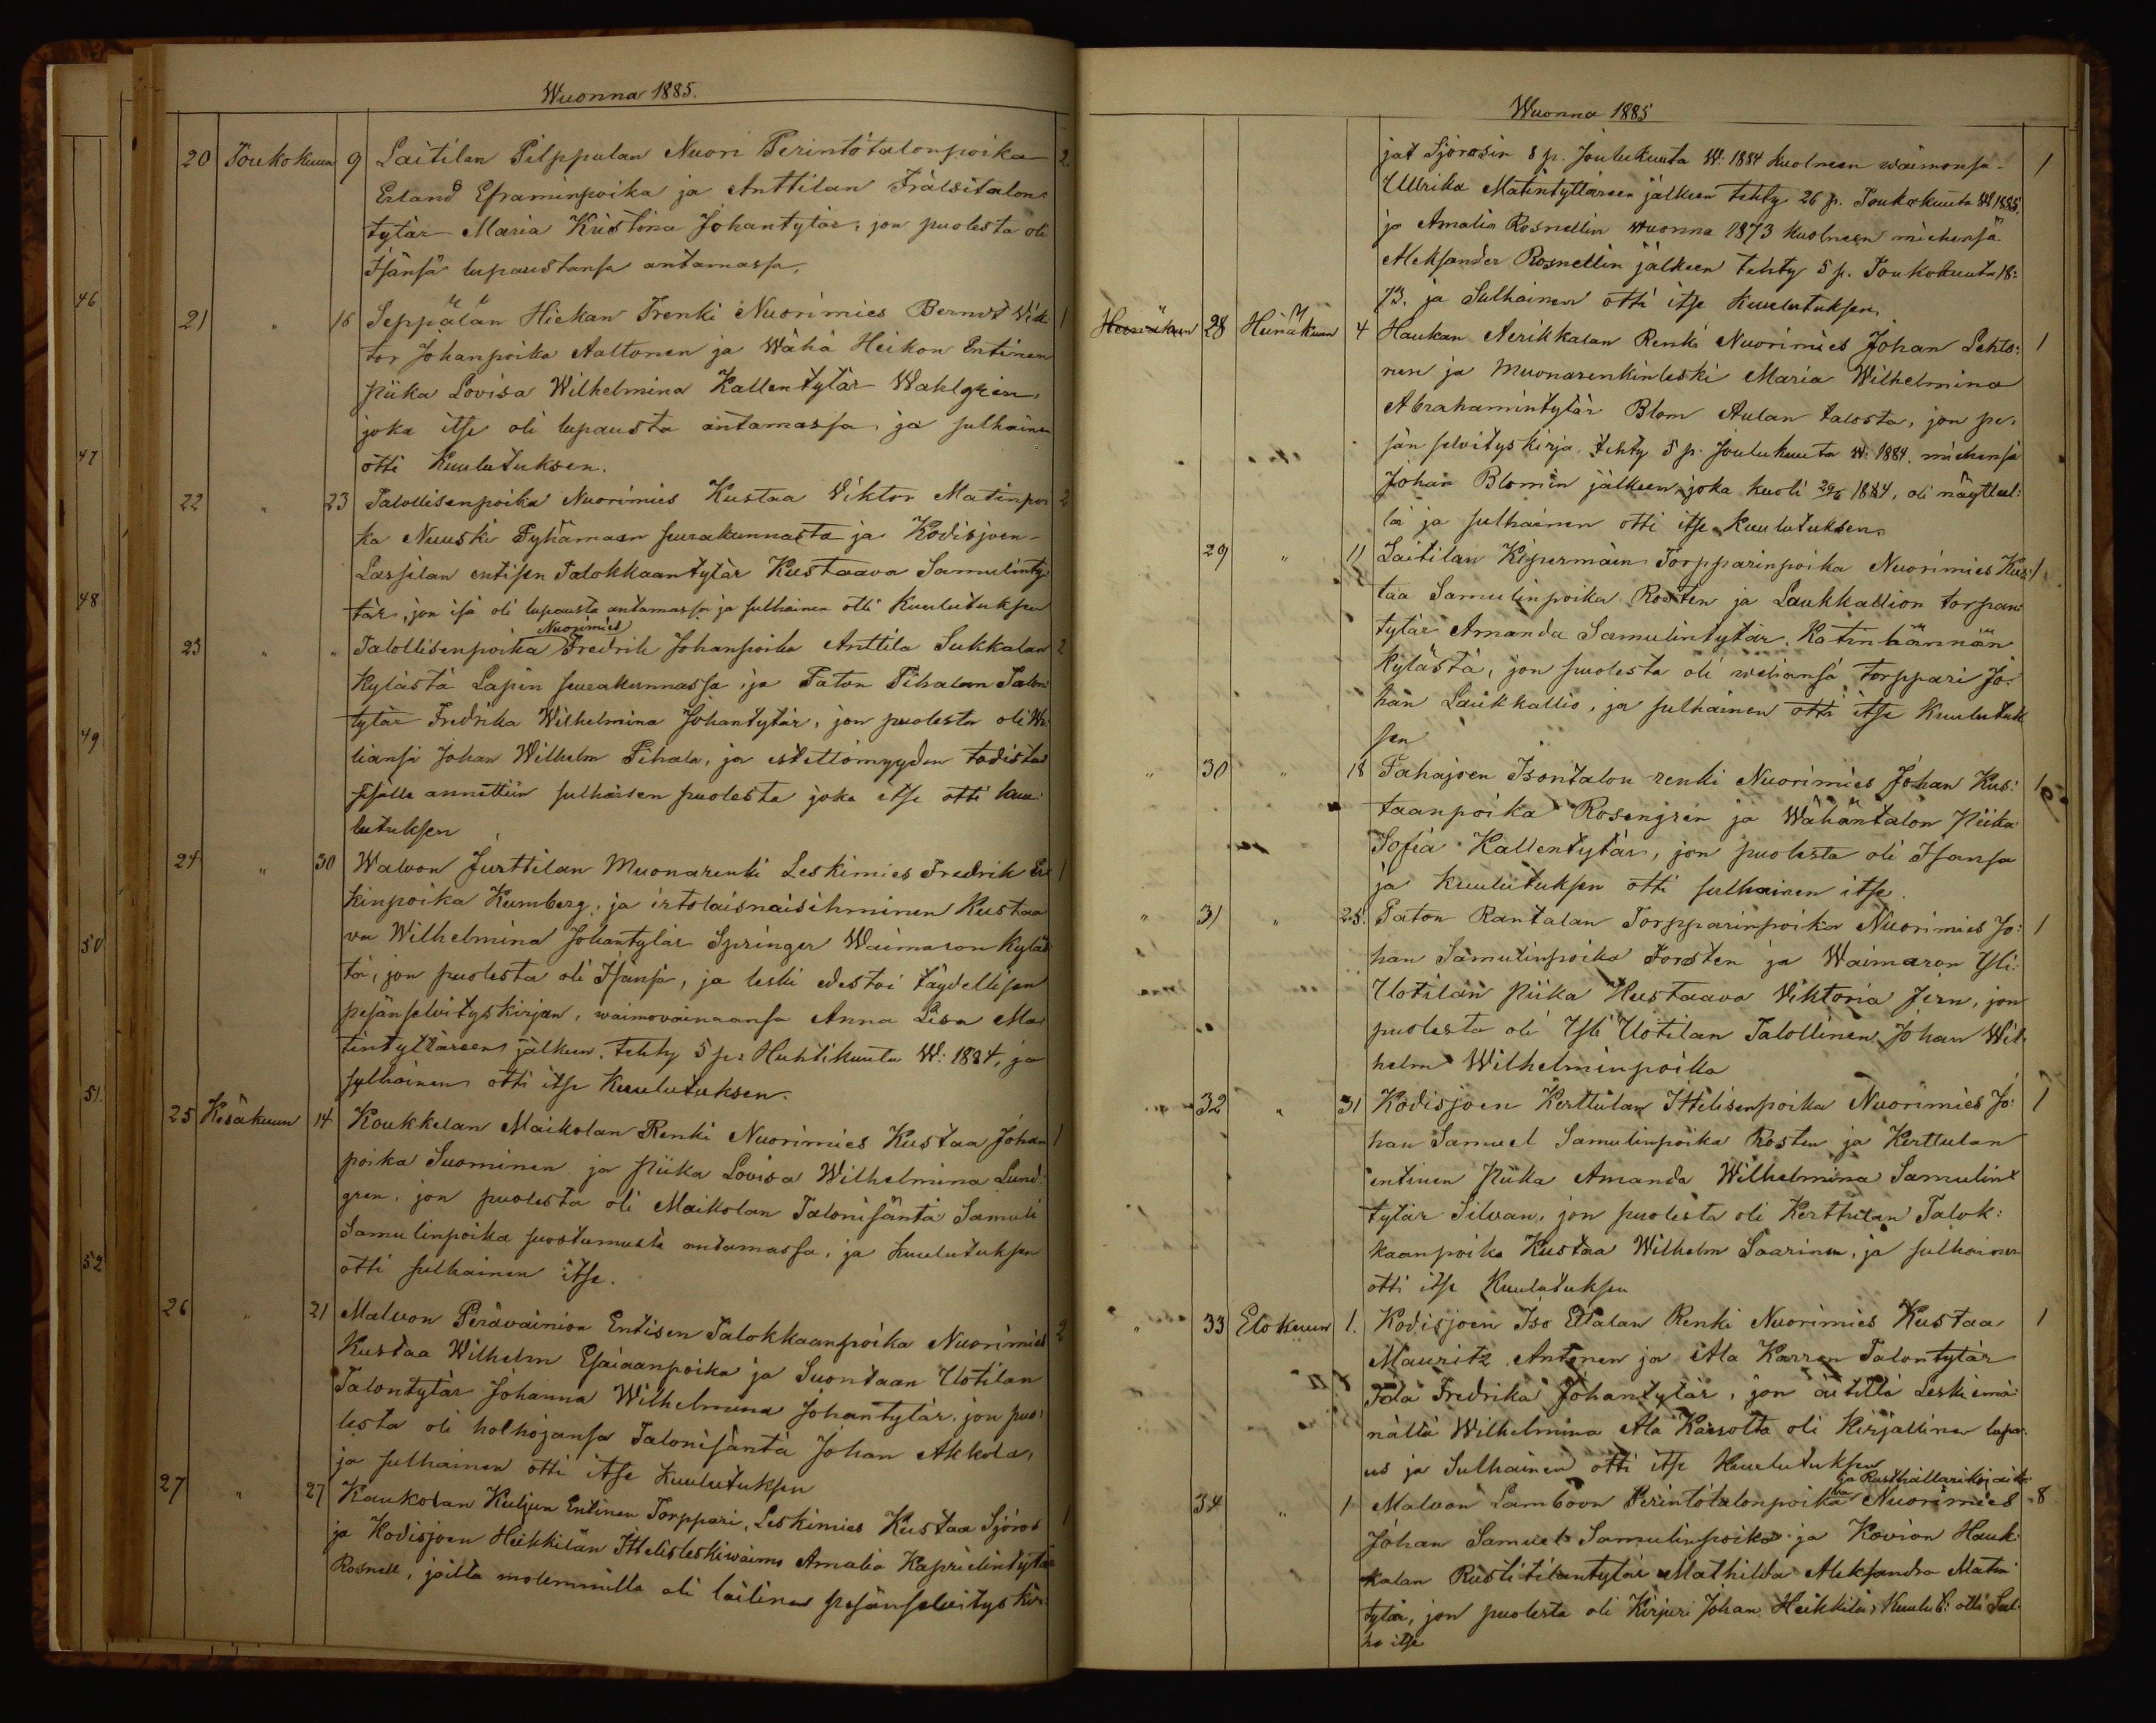 Wuonna 1885.
20 Toukokuun 9 Laitilan Pilppulan Nuori Perintötalonpoika 2
Erland Eframinpoika ja Anttilan Frälsitalon
tytär Maria Kristina Johantytär, jon puolesta oli
Isänsä lupaustansa antamassa.
21 " 16 Seppälän Hiekan Trenki Nuorimies Berndt Vik 1
tor Johanpoika Aaltonen ja Wähä Heikon Entinen
Piika Lovisa Wilhelmina Kallentytär Wahlgren,
joka itse oli lupausta antamassa, ja sulhainen
otti Kuulutuksen.
22 " 23 Talollisenpoika Nuorimies Kustaa Viktor Matinpoi 2
ka Nuuski Pyhämaan seurakunnasta ja Kodisjoen
Lassilan entisen Talokkaantytär Kustaava Samulinty
tär, jon isä oli lupausta antamassa ja sulhainen otti Kuulutuksen
Nuorimies
23 " " Talollisenpoika Fredrik Johanpoika Anttila Sukkalan 2
Kylästä Lapin seurakunnassa ja Paton Pihalan Talon
tytär Fredrika Wilhelmina Johantytär, jon puolesta oli We
liänsä Johan Wilhelm Pihala, ja esteettömyyden todistus
sisälle annettiin sulhaisen puolesta joka itse otti kuu
lutuksen
24 " 30 Walvon Jurttilan Muonarenki Leskimies Fredrik Er 1
kinpoika Kumberg, ja irtolaisnaisihminen Kustaa
va Wilhelmina Johantytär Springer Waimaron Kyläs
tä, jon puolesta oli Isänsä, ja leski edestoi täydellisen
pesänselvityskirjan, waimovainaansa Anna Lisa Ma
tintyttäreen jälkeen, tehty 5 p: Huhtikuuta W: 1884, ja
sulhainen otti itse Kuulutuksen.
25 Kesäkuun 14 Koukkelan Maikolan Renki Nuorimies Kustaa Johan 1
poika Suominen ja Piika Lovisa Wilhelmina Lund
gren, jon puolesta oli Maikolan Talonisäntä Samuli
Samulinpoika suostumusta antamassa, ja kuulutuksen
otti sulhainen itse.
26 " 21 Malvon Perävainion Entisen Talokkaanpoika Nuorimies 2
Kustaa Wilhelm Esaiaanpoika ja Suontaan Uotilan
Talontytär Johanna Wilhelmina Johantytär, jon puo
lesta oli holhojansa Talonisäntä Johan Akkola,
ja sulhainen otti itse Kuulutuksen
27 " 27 Kaukolan Kuljun Entinen Torppari, Leskimies Kustaa Sjöros 1
ja Kodisjoen Heikkilän Ittelisleskiwaimo Amalia Kaprielintytär
Rosnell, joilla molemmilla oli laillinen pesänselvityskir
46
47
48
49
50
51.
52
Wuonna 1885
jat Sjörosin 8 p. Joulukuuta W: 1884 kuolneen waimonsa 1
Ullrika Matintyttäreen jälkeen tehty 26 p. Toukokuuta W 1885,
ja Amalia Rosnellin wuonna 1873 kuolneen miehensä
Aleksander Rosnellin jälkeen tehty 5 p. Toukokuuta 18:
73. ja Sulhainen otti itse Kuulutuksen.
28 Heinäkuun 4 Haukan Aerikkalan Renki Nuorimies Johan Lehto: 1
nen ja Muonarenkinleski Maria Wilhelmina
Abrahamintytär Blom Aulan talosta, jon pe:
sän selvityskirja, tehty 5 p. Joulukuuta W: 1884. miehensä
Johan Blomin jälkeen, joka kuoli 29/6 1884, oli näytteel:
lä ja sulhainen otti itse Kuulutuksen
29 " 11 Laitilan Kipermäen Torpparinpoika Nuorimies Kus: 1
taa Samulinpoika Rosten ja Laukkallion torpan
tytär Amanda Samulintytär, Katinhännän
kylästä, jon puolesta oli weliänsä torppari Jo
han Laukkallio, ja sulhainen otti itse Kuulutuk
sen
" 30 " 18 Pahajoen Isontalon renki Nuorimies Johan Kus: 1
taanpoika Rosengren ja Wähäntalon Piika
Sofia Kallentytär, jon puolesta oli Isänsä
ja kuulutuksen otti sulhainen itse.
" 31 " 25. Paton Rantalan Torpparinpoika Nuorimies Jo: 1
han Samulinpoika Forsten ja Waimaron Yli:
Uotilan Piika Kustaava Viktoria Jern, jon
puolesta oli Yli Uotilan Talollinen Johan Wil
helm Wilhelminpoika
32 " 31 Kodisjoen Kerttulan Ittelisenpoika Nuorimies Jo: 1
han Samuel Samulinpoika Rosten ja Kerttulan
entinen Piika Amanda Wilhelmina Samulin
tytär Silvan, jon puolesta oli Kerttulan Talok:
kaanpoika Kustaa Wilhelm Saarinen, ja sulhainen
otti itse Kuulutuksen
" 33 Elokuun 1. Kodisjoen Iso Etalan Renki Nuorimies Kustaa 1
Mauritz Antonen ja Ala Karron Talontytär
Ida Fredrika Johantytär, jon äitillä Leskiemä
nällä Wilhelmina Ala Karsolta oli Kirjallinen lupa
us ja Sulhainen otti itse Kuulutuksen
34 " 1 Malvon Lamboon Perintötalonpoika Nuorimies 8
Johan Samuel Samulinpoika ja Kovion Hauk
kalan Rustitilantytär Mathilda Aleksandra Matin
tytär, jon puolesta oli Kirjuri Johan Heikkilä, Kuulut: otti Sul
ha itse